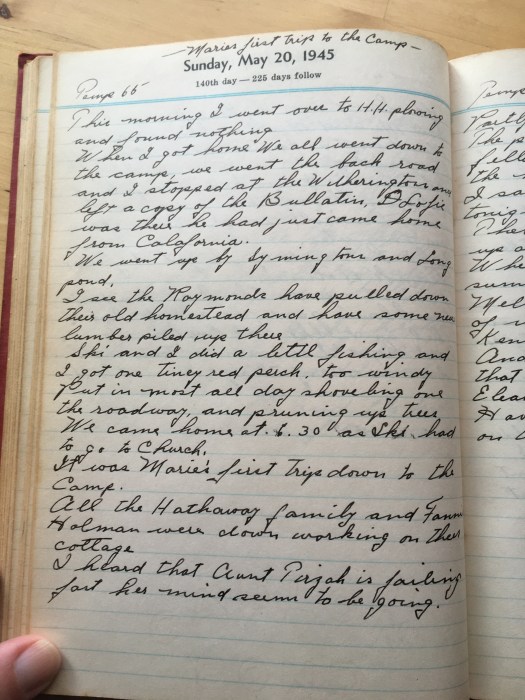 —Maries first trip to the Camp—
Sunday, May 20, 1945
140th day — 225 days follow
Temp 65
This morning I went over to H.H. plowing
and found nothing
When I got home We all went down to
the camp, we went the back road
and I stopped at the Witherington and
left a copy of the Bullatin,
was their he had just came home
from Calafornia.
We went up by Symington and Long
pond.
I see the Raymonds have pulled down
their old homestead and have some new
lumber piled up there
Ski and I did a littl fishing and
I got one tiney red perch. too windy
Put in most all day shoveling one
the roadway, and pruning up trees
We came home at 6.30 as Ski had
to go to Church.
It was Marie's first Trip down to the
Camp.
All the Hathaway family and
Holman were down working on their
cottage
I heard that Aunt Pirzah is failing
fast her mind seems to be going.
Partly
The
the
I sa
tonig
Ther
up a
Whe
sum
Mel
of
Ken
And
that
Elea
Ha
on